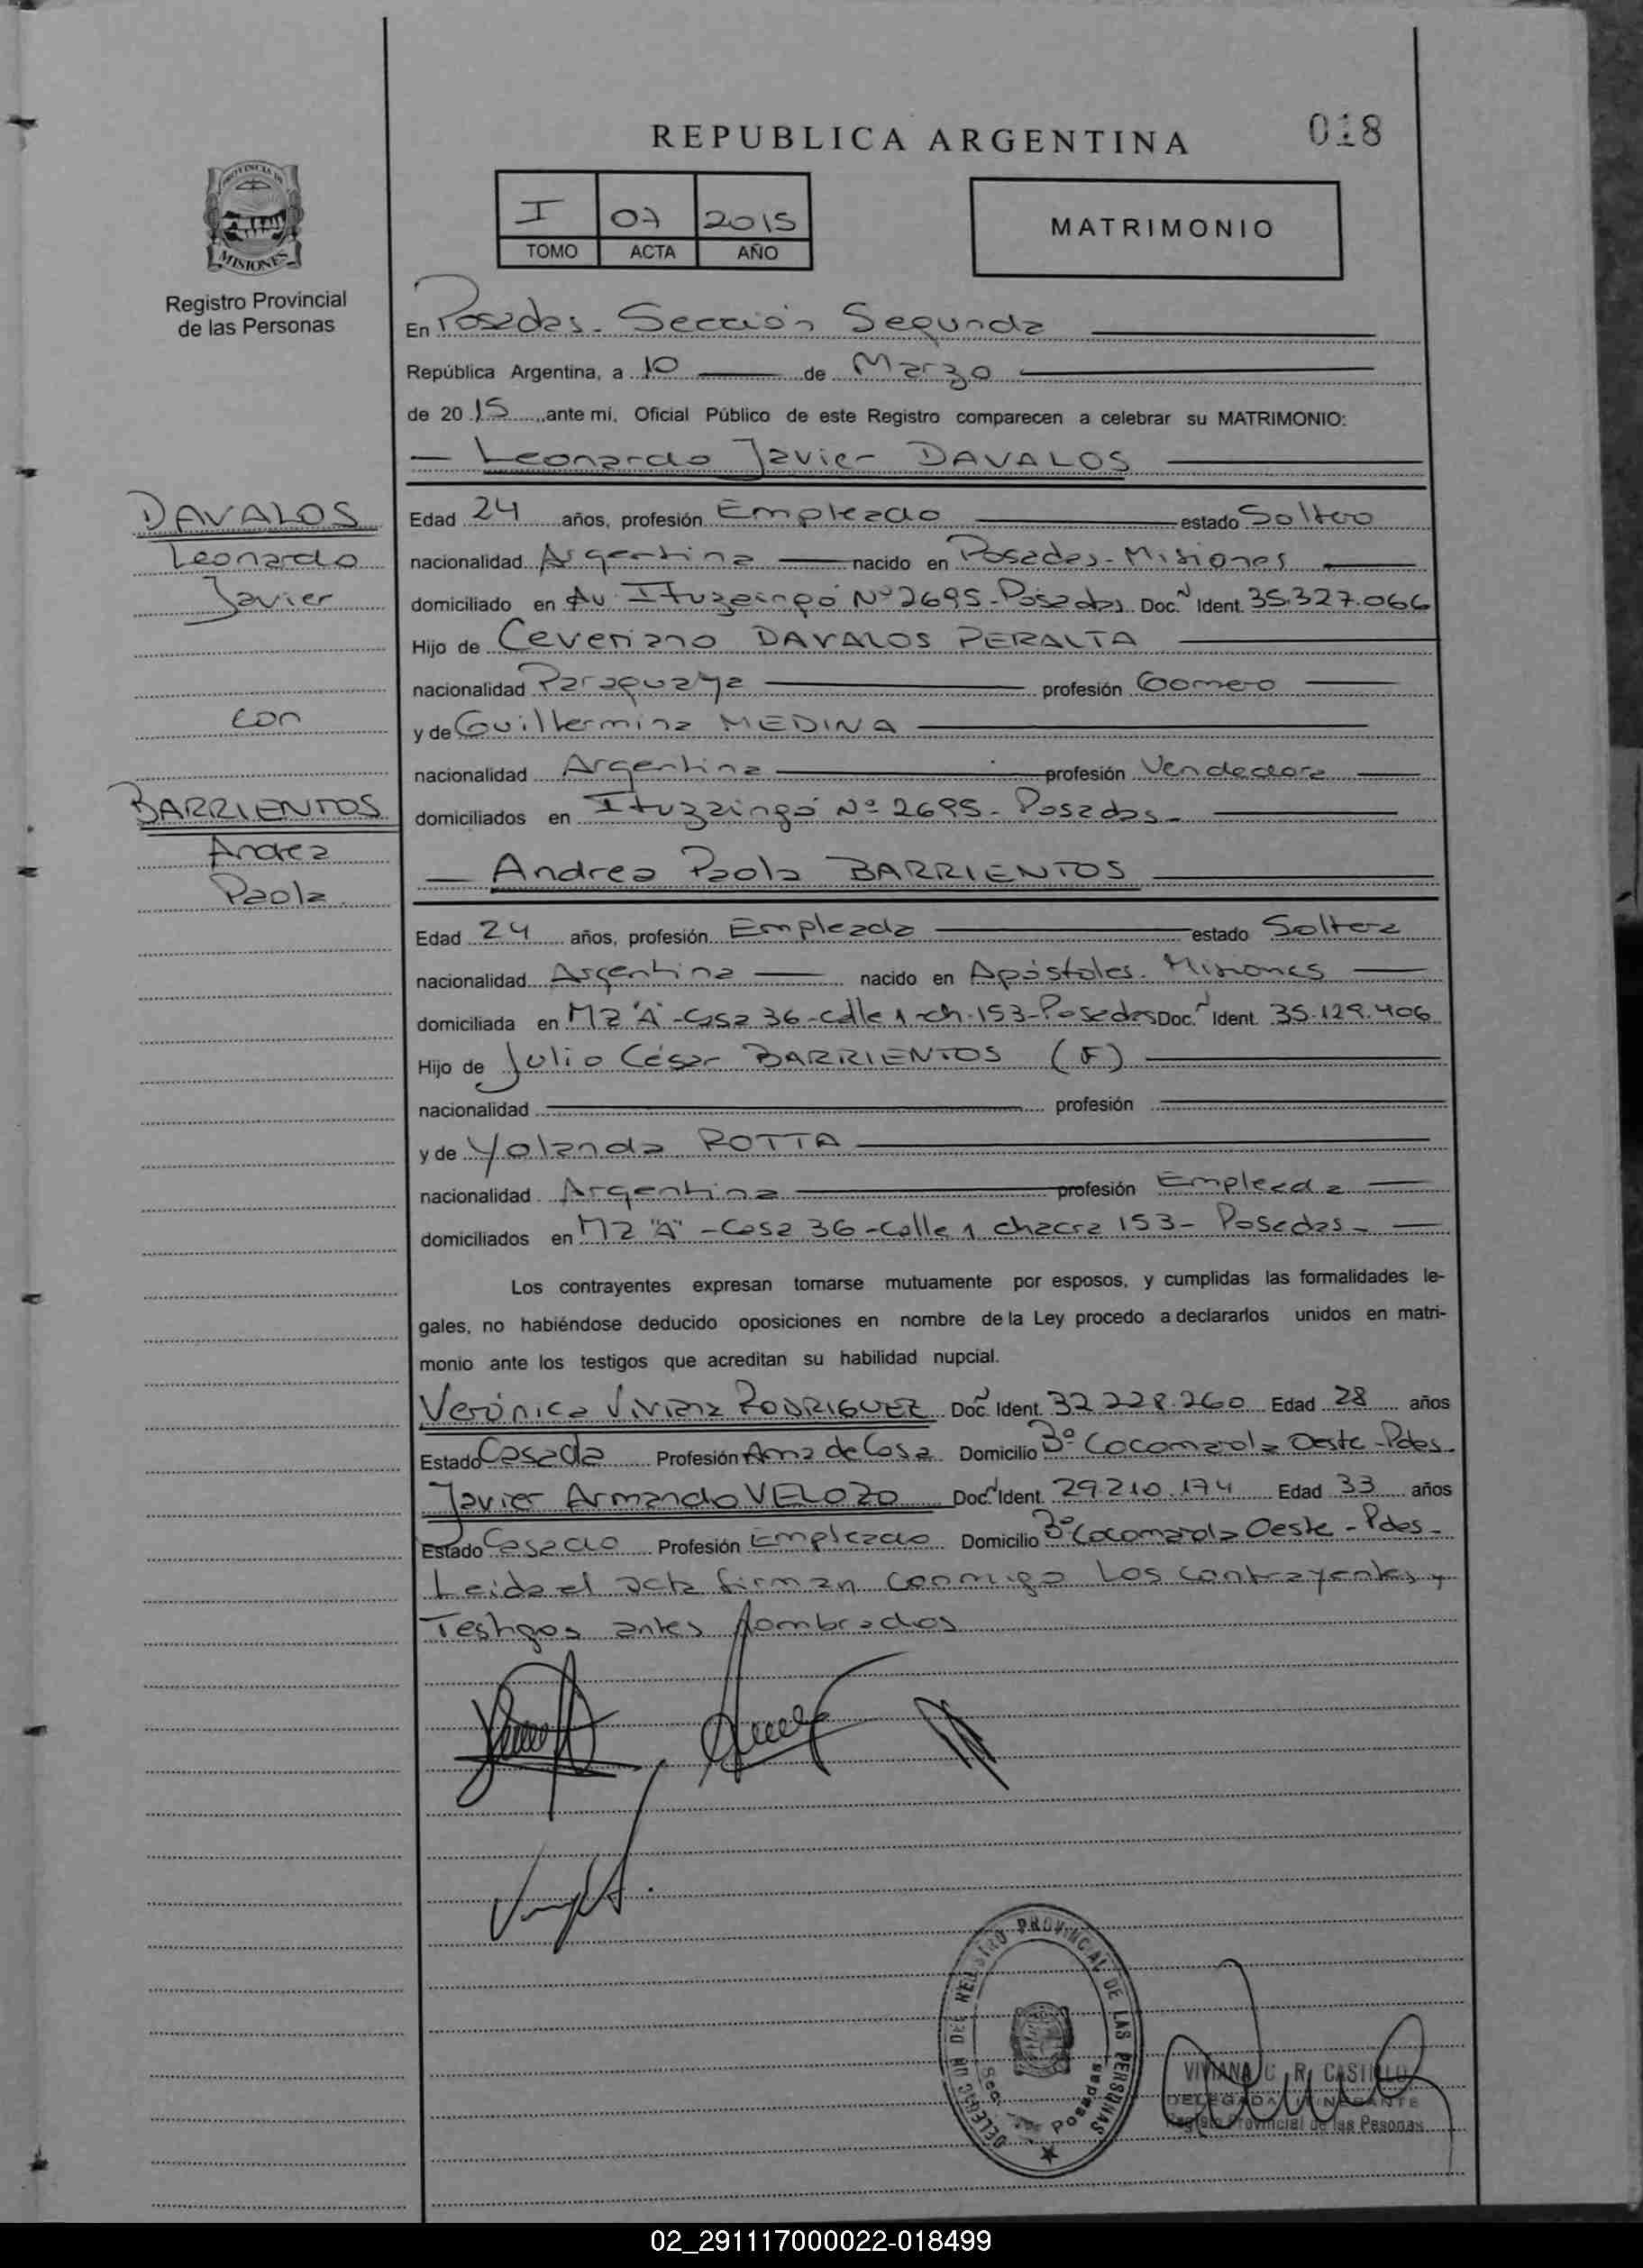 REPUBLICA ARGENTINA
018
PROVINCIA DE
MISIONES
Registro Provincial
de las Personas
I 07 2015
TOMO ACTA AÑO
MATRIMONIO
En Posadas - Sección Segunda
República Argentina, a 10 de Marzo
de 20 15 ante mi, Oficial Público de este Registro comparecen a celebrar su MATRIMONIO:
— Leonardo Javier DAVALOS
DAVALOS
Leonardo
Javier
con
BARRIENTOS
Andrea
Paola
Edad 24 años, profesión Empleado estado Soltero
nacionalidad Argentina nacido en Posadas - Misiones
domiciliado en Av. Ituzaingó Nº 2695 - Posadas Doc. N Ident. 35.327.066
Hijo de Ceveriano DAVALOS PERALTA
nacionalidad Paraguaya profesión Gomero
y de Guillermina MEDINA
nacionalidad Argentina profesión Vendedora
domiciliados en Ituzaingó Nº 2695 - Posadas -
— Andrea Paola BARRIENTOS
Edad 24 años, profesión Empleada estado Soltera
nacionalidad Argentina nacido en Apóstoles - Misiones
domiciliada en Mz "A" - Casa 36 - calle 1 - ch. 153 - Posadas Doc. N Ident. 35.129.406
Hijo de Julio César BARRIENTOS (F)
nacionalidad profesión
y de Yolanda ROTTA
nacionalidad Argentina profesión Empleada
domiciliados en Mz "A" - Casa 36 - calle 1 chacra 153 - Posadas -
Los contrayentes expresan tomarse mutuamente por esposos, y cumplidas las formalidades le-
gales, no habiéndose deducido oposiciones en nombre de la Ley procedo a declararlos unidos en matri-
monio ante los testigos que acreditan su habilidad nupcial.
Verónica Viviana RODRIGUEZ Doc. N Ident. 32.228.260 Edad 28 años
Estado Casada Profesión Ama de Casa Domicilio Bº Cocomarola Oeste - Pdas.
Javier Armando VELOZO Doc. N Ident. 29.210.174 Edad 33 años
Estado Casado Profesión Empleado Domicilio Bº Cocomarola Oeste - Pdas -
Leida el acta firman conmigo los contrayentes y
Testigos antes nombrados
DELEGAC ON DEL REGISTRO PROVINCIAL DE LAS PERSONAS
Sec. Posadas
VIVIANA C. R. CASTILLO
DELEGADA ITINERANTE
Registro Provincial de las Pesonas
02_291117000022-018499